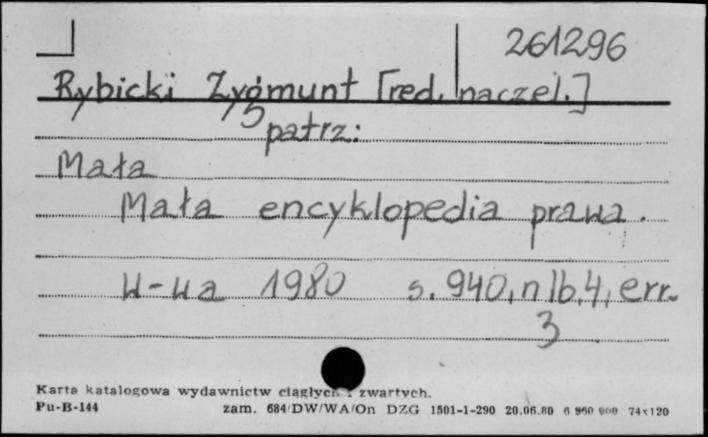 261296
Rybicki Zygmunt [red. naczel.]
patrz:
Mała
Mała encyklopedia prawa.
W-wa 1980 s. 940, nlb. 4, err.
3
Karta katalogowa wydawnictw ciągłych i zwartych.
Pu-B-144 zam. 684/DW/WA/On DZG 1501-1-290 20.06.80 6 960 000 74x120